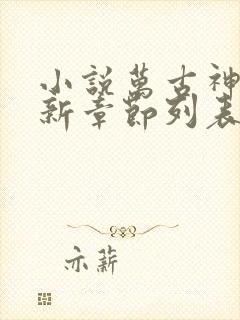 小說萬古神
新章節列表
亦薪